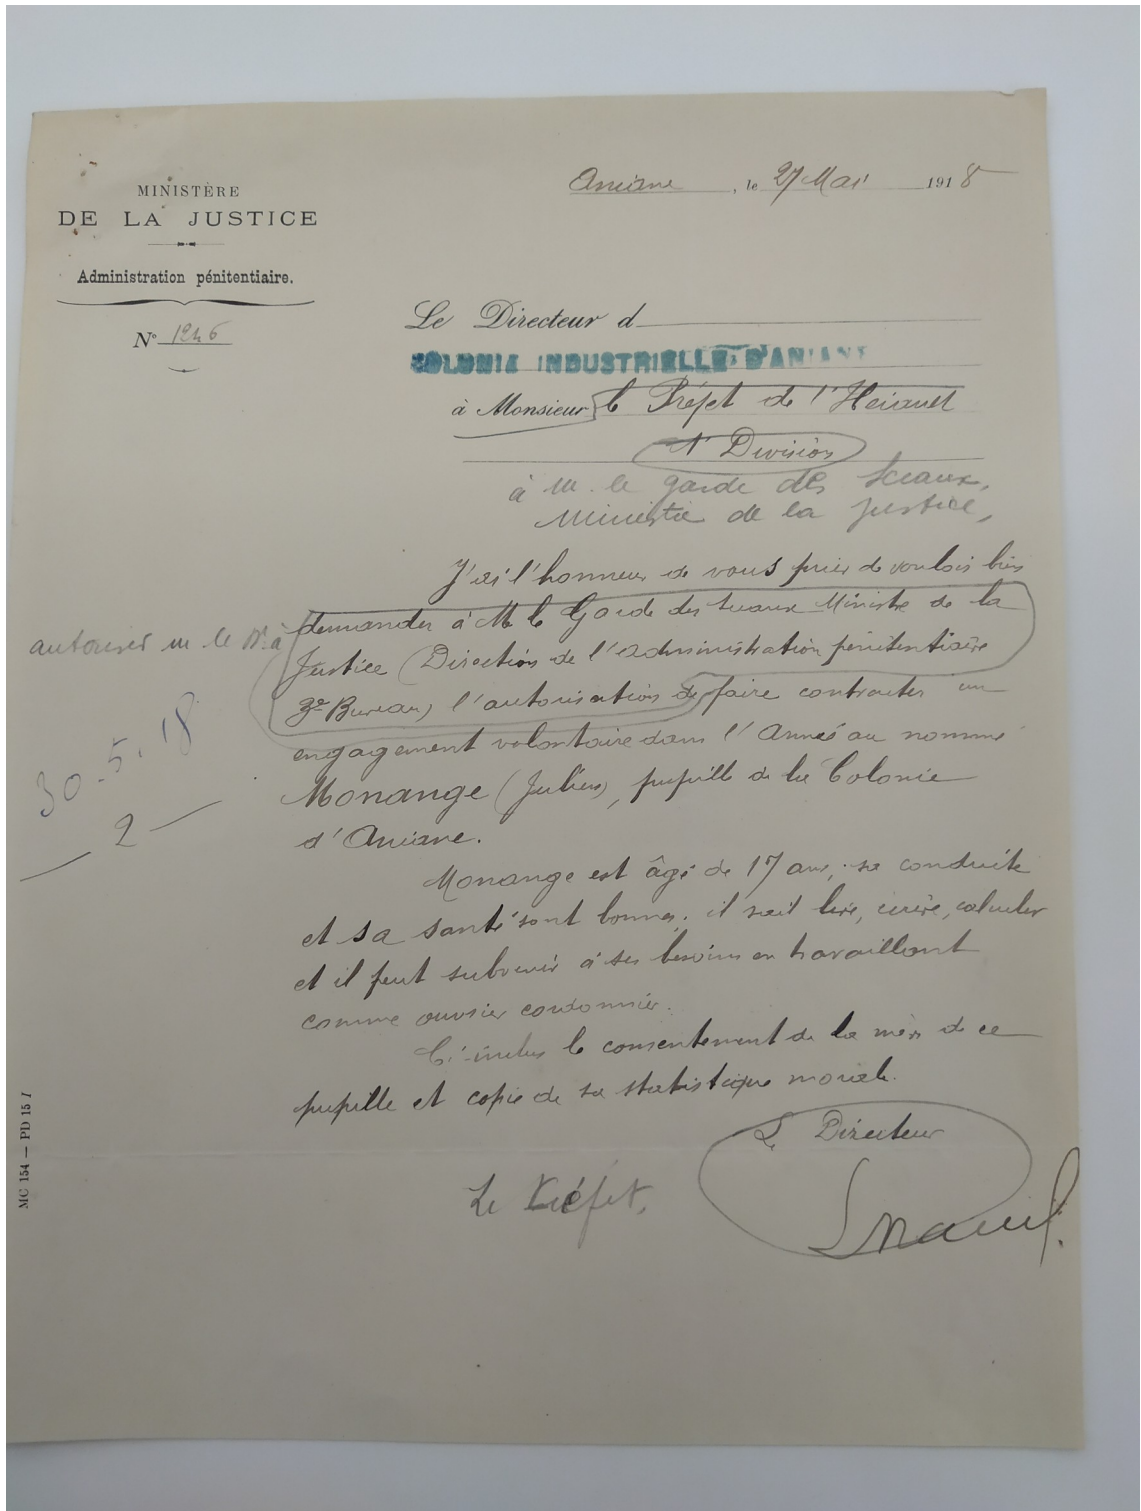 MINISTÈRE
DE LA JUSTICE
Administration pénitentiaire.
N° 1246
Aniane, le 27 Mai 1918
Le Directeur d
COLONIE INDUSTRIELLE D'ANIANE
à Monsieur le Préfet de l'Hérault
1e Division
à M. le garde des Sceaux,
Ministre de la justice,
J'ai l'honneur de vous prier de vouloir bien
demander à M. le Garde des Sceaux Ministre de la
Justice (Direction de l'administration pénitentiaire
3e Bureau) l'autorisation de faire contracter un
engagement volontaire dans l'Armée au nommé
Monange (Julien), pupille de la Colonie
d'Aniane.
autoriser M. le Dr à
30.5.18
2
Monange est âgé de 17 ans, sa conduite
et sa santé sont bonnes; il sait lire, écrire, calculer
et il peut subvenir à ses besoins en travaillant
comme ouvrier cordonnier.
Ci-inclus le consentement de la mère de ce
pupille et copie de sa statistique morale.
Le Directeur
Le Préfet,
MC 154 — PD 15 I